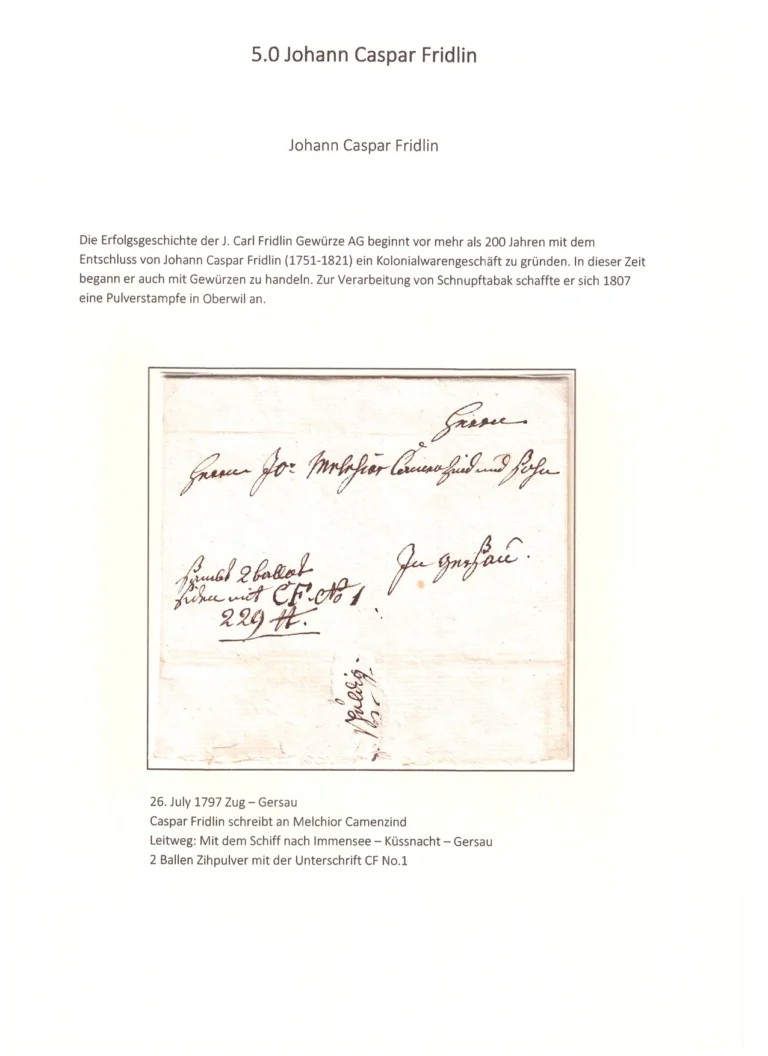 5.0 Johann Caspar Fridlin
Johann Caspar Fridlin
Die Erfolgsgeschichte der J. Carl Fridlin Gewürze AG beginnt vor mehr als 200 Jahren mit dem
Entschluss von Johann Caspar Fridlin (1751-1821) ein Kolonialwarengeschäft zu gründen. In dieser Zeit
begann er auch mit Gewürzen zu handeln. Zur Verarbeitung von Schnupftabak schaffte er sich 1807
eine Pulverstampfe in Oberwil an.
Herren
Herren Jo: Melchior Camenzind und Sohn
In Gersau.
sambt 2 ballot
mit CF. No 1
229 ℔.
26. July 1797 Zug – Gersau
Caspar Fridlin schreibt an Melchior Camenzind
Leitweg: Mit dem Schiff nach Immensee – Küssnacht – Gersau
2 Ballen Zihpulver mit der Unterschrift CF No.1